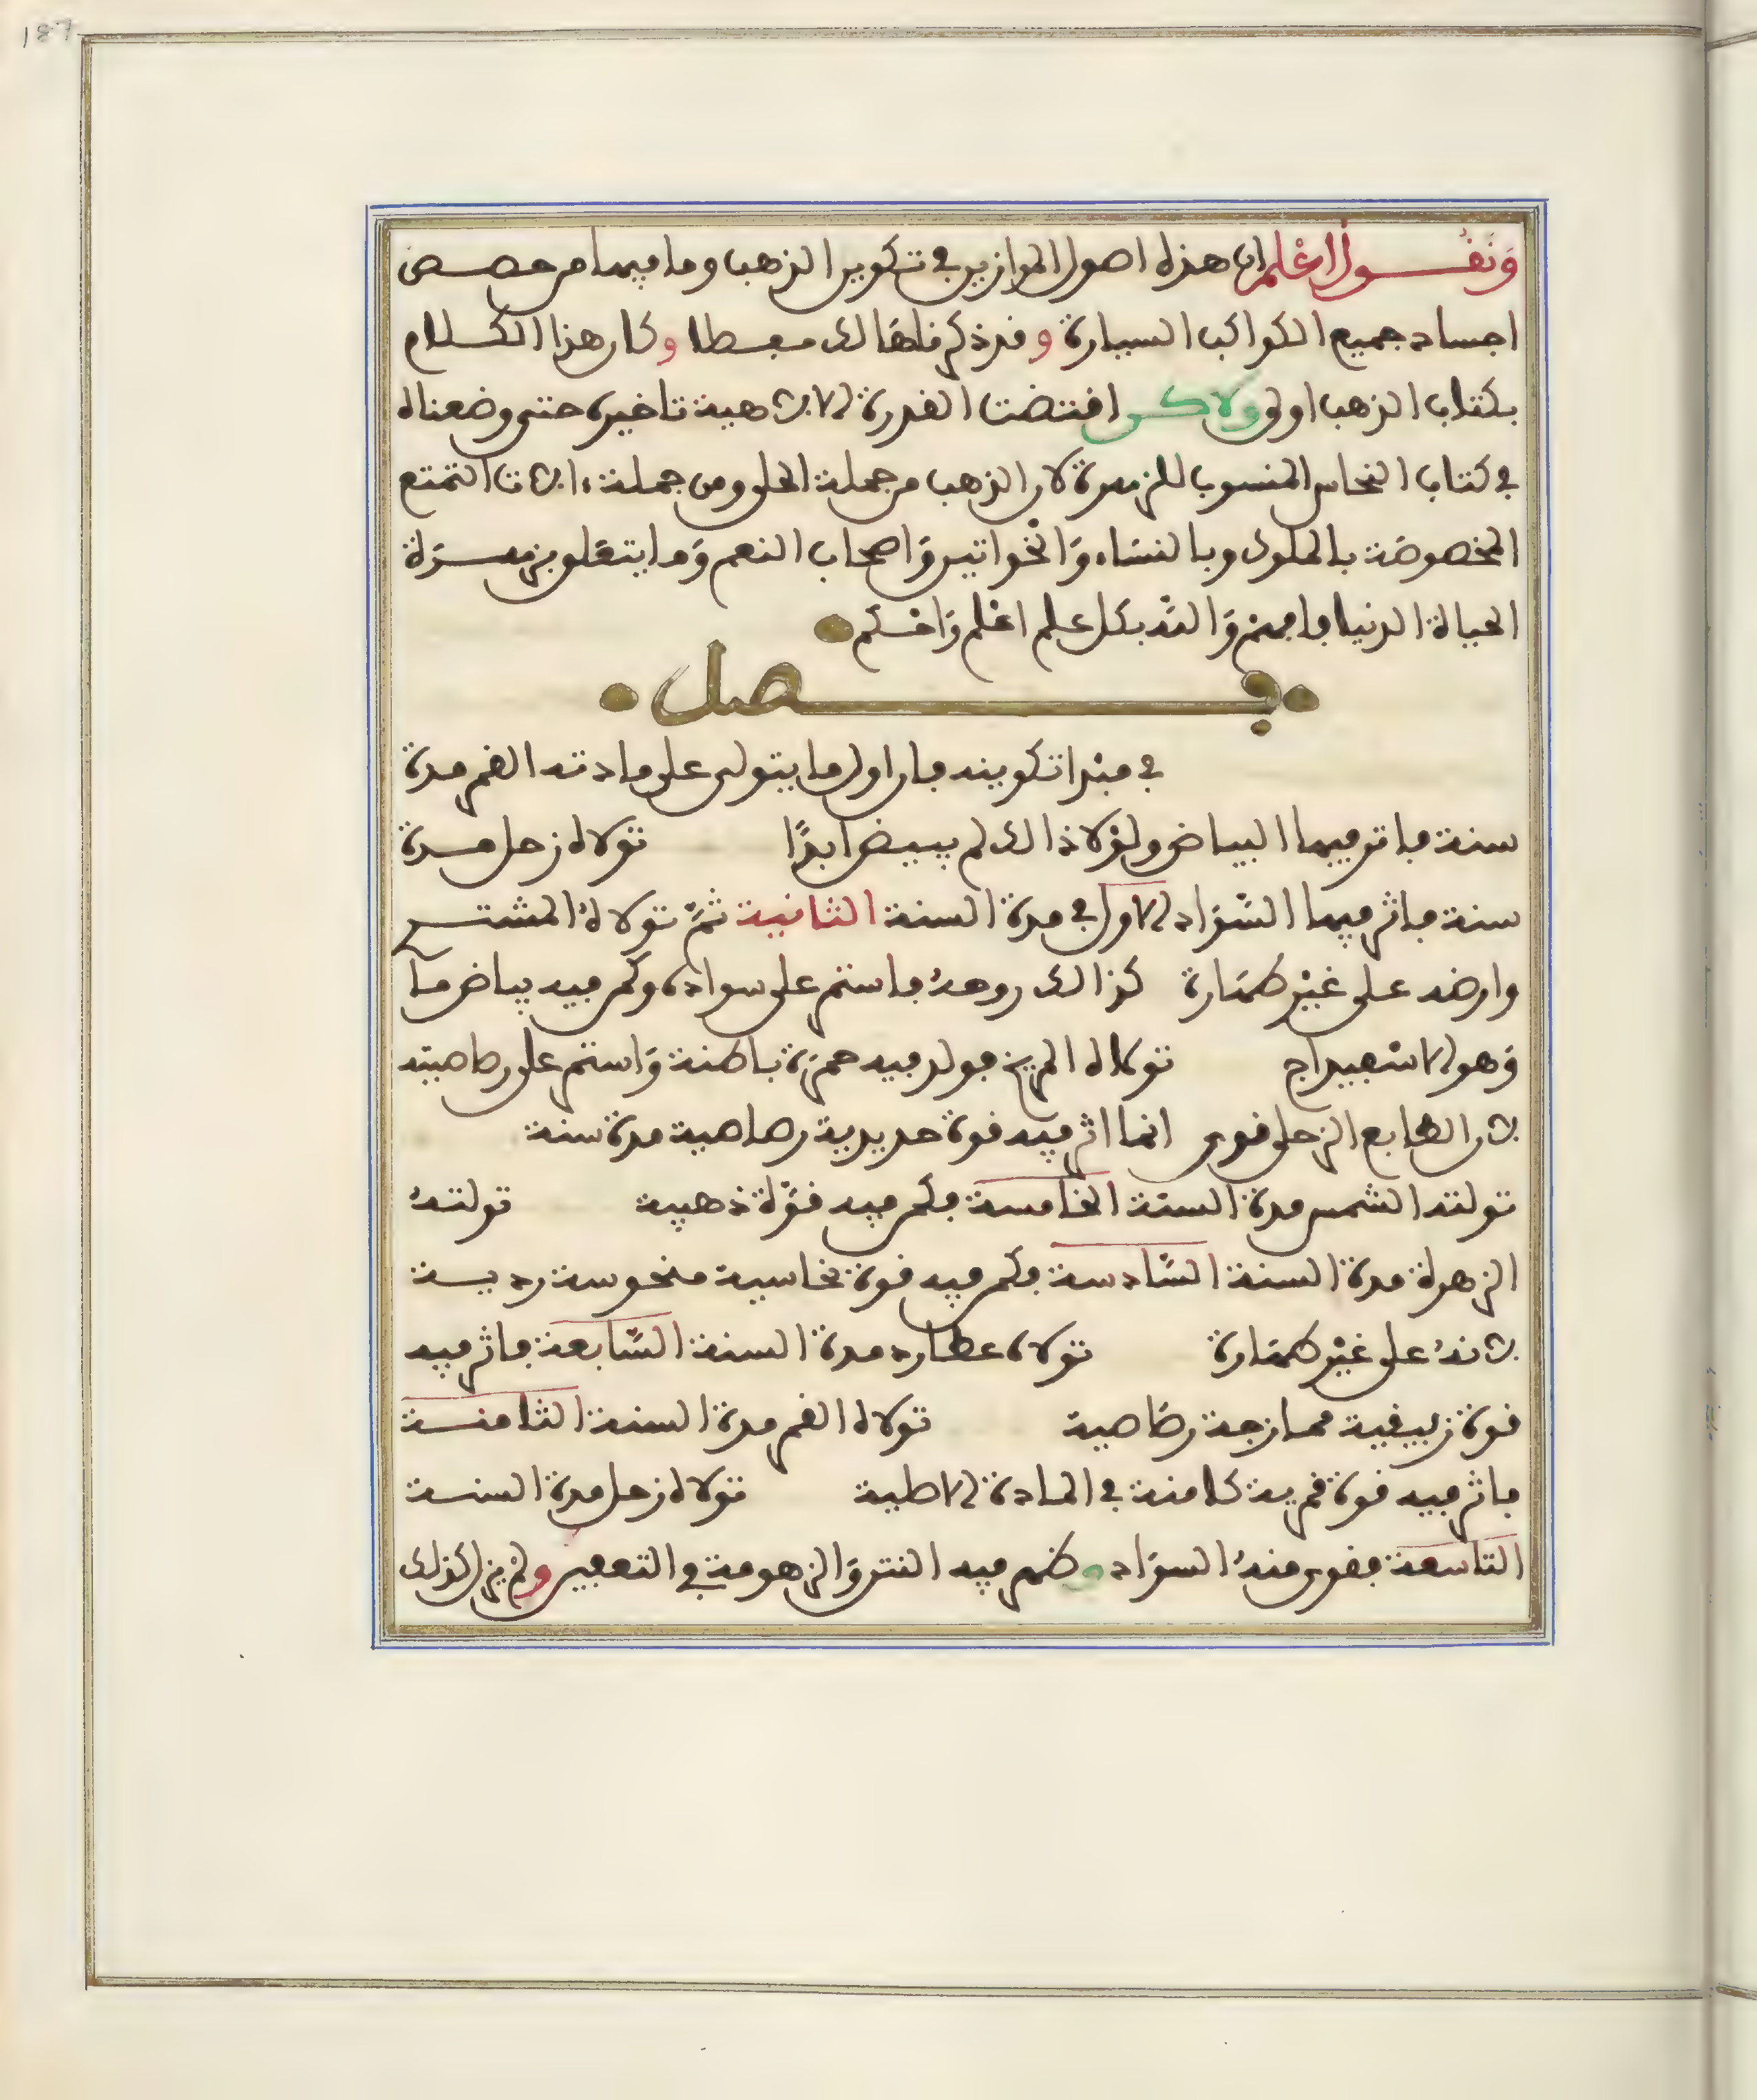 187
وَنَقُــول اعْلم ان هذه اصول الموازين في تكوين الذهب وما فيها من حصــص
اجساد جميع الكواكب السيارة وقد ذكرناها لك مفصلا وكان هذا الكــلام
بكتاب الذهب اولى ولاكــن اقتضت القدرة الالاهية تاخيره حتى وضعناه
في كتاب النحاس المنسوب للزهرة لان الذهب من جملة الحلي ومن جملة ءالات التمتع
المخصوصَة بالملوك وبالنسَاء وَالخواتين وَاصحاب النعم وَما يتعَلق بزهــرَة
الحياة الدنيا فافهم وَالله بكل علم اعْلم وَاحْـكم
فــــصل
في مبْدا تكوينه فان اول ما يتولى على مادته القمر مدة
سنة فاثر فيها البياض ولوْلا ذالك لم يبيض ابدًا تولاه زحل مــدة
سنة فاثر فيها السَّوَاد الاول في مدة السنة الثانية ثمَّ تولاهُ المشتــري
وارضه على غيْر طهَارة كذالك روحهُ فاستمر على سواده وكمن فيه بياض مـا
وَهو الاسْفيداج تولاه المريخ فولد فيه حمرَة باطنة وَاستمر على رصاصيته
لان الطابع الزحلي قوي انما اثر فيه قوة حديدية رصاصية مدة سنة
تولته الشمس مدة السنَة الخامسة فكمن فيه قوَّة ذهبية تولتهُ
الزهرة مدة السنة السَّادسة فكمن فيه قوة نحاسية منحوسة رديــة
لانهُ على غيْر طهَارة تولاه عطارد مدة السنة السَّابعة فاثر فيه
قوة زيبقية ممازجة رصَاصية تولاه القمر مدة السنة الثامنــة
فاثر فيه قوة قمرية كامنة في المادة الاصلية تولاه زحل مدة السنــة
التاسعة فقوي منهُ السوَاد وظهر فيه النتن وَالزهومة في التعفين ولمْ يزل كذلك